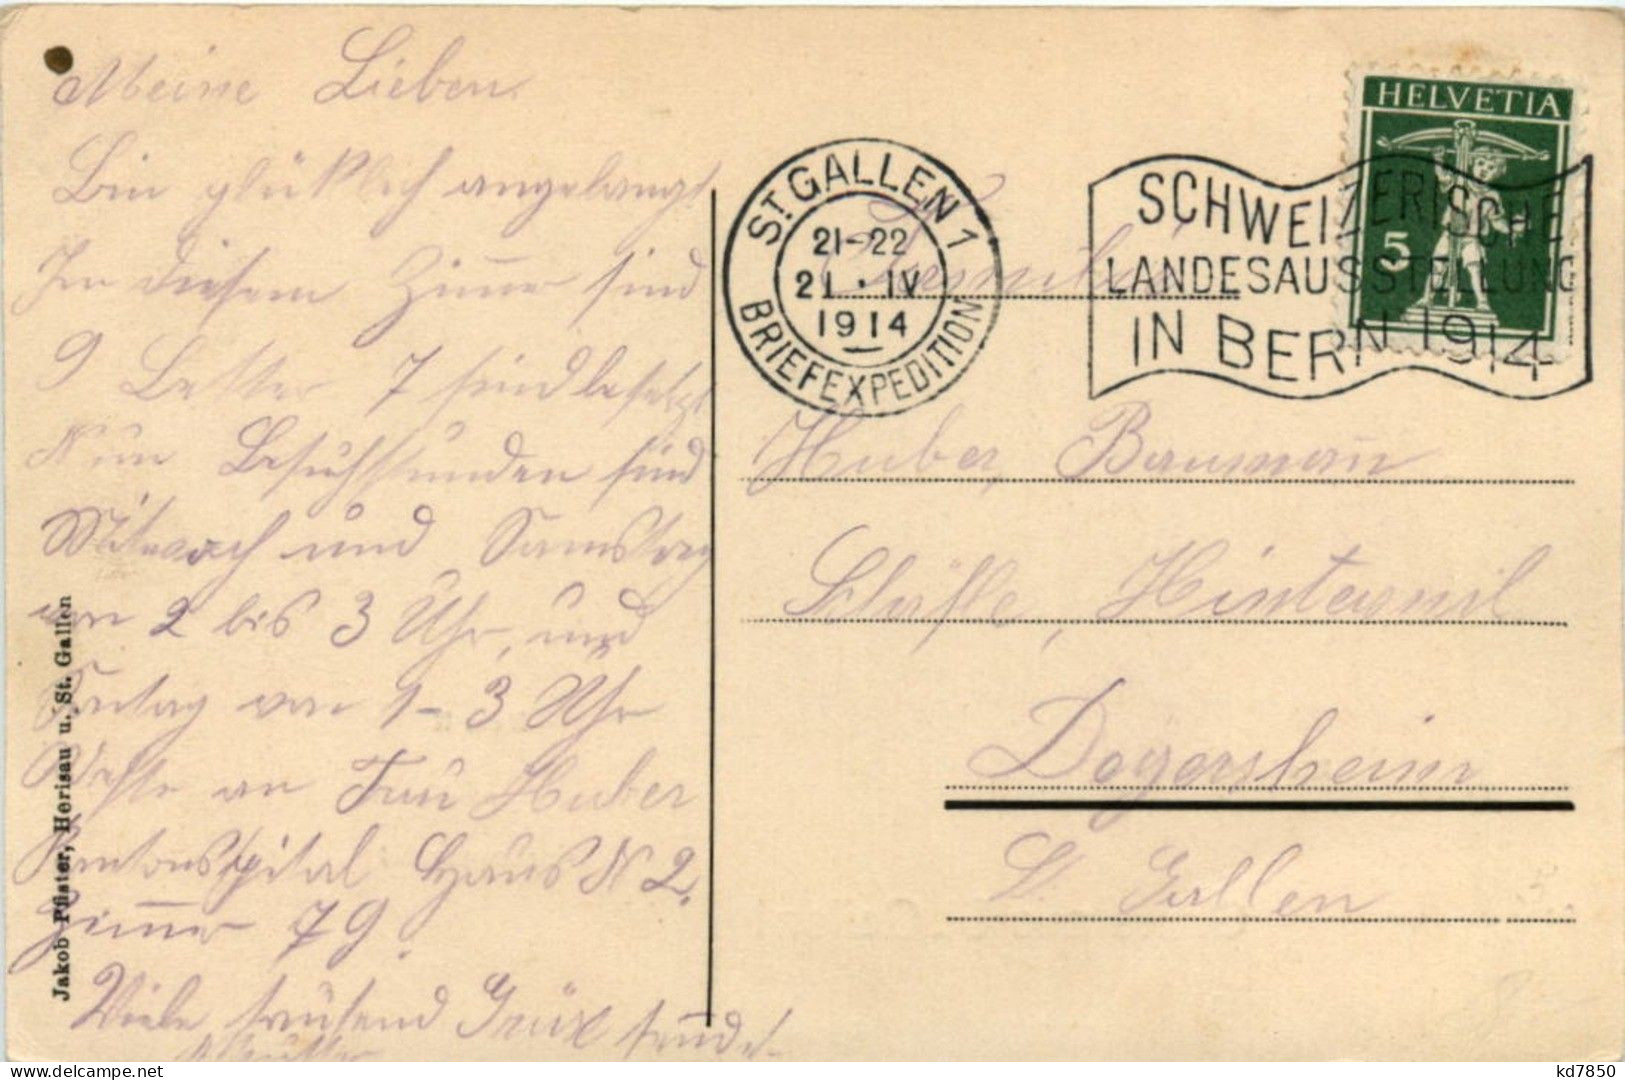 Meine Lieben.
Bin glücklich angelangt
In diesem Zimer sind
9 Better 7 sind besetzt
Nun Besuchstunden sind
Mitwoch und Samstag
von 2 bis 3 Uhr, und
Sontag von 1-3 Uhr
Adresse an Frau Huber
Kantonsspital Haus N 2.
Zimer 79.
Viele tausend Grüsse sendet
Mutter
Jakob Pfister, Herisau u. St. Gallen
ST. GALLEN 1
21-22
21 · IV
1914
BRIEFEXPEDITION
HELVETIA
5
SCHWEIZERISCHE
LANDESAUSSTELLUNG
IN BERN 1914
Familie
Huber, Bauman
Schäfle, Hinterwil
Degersheim
St. Gallen
kd7850